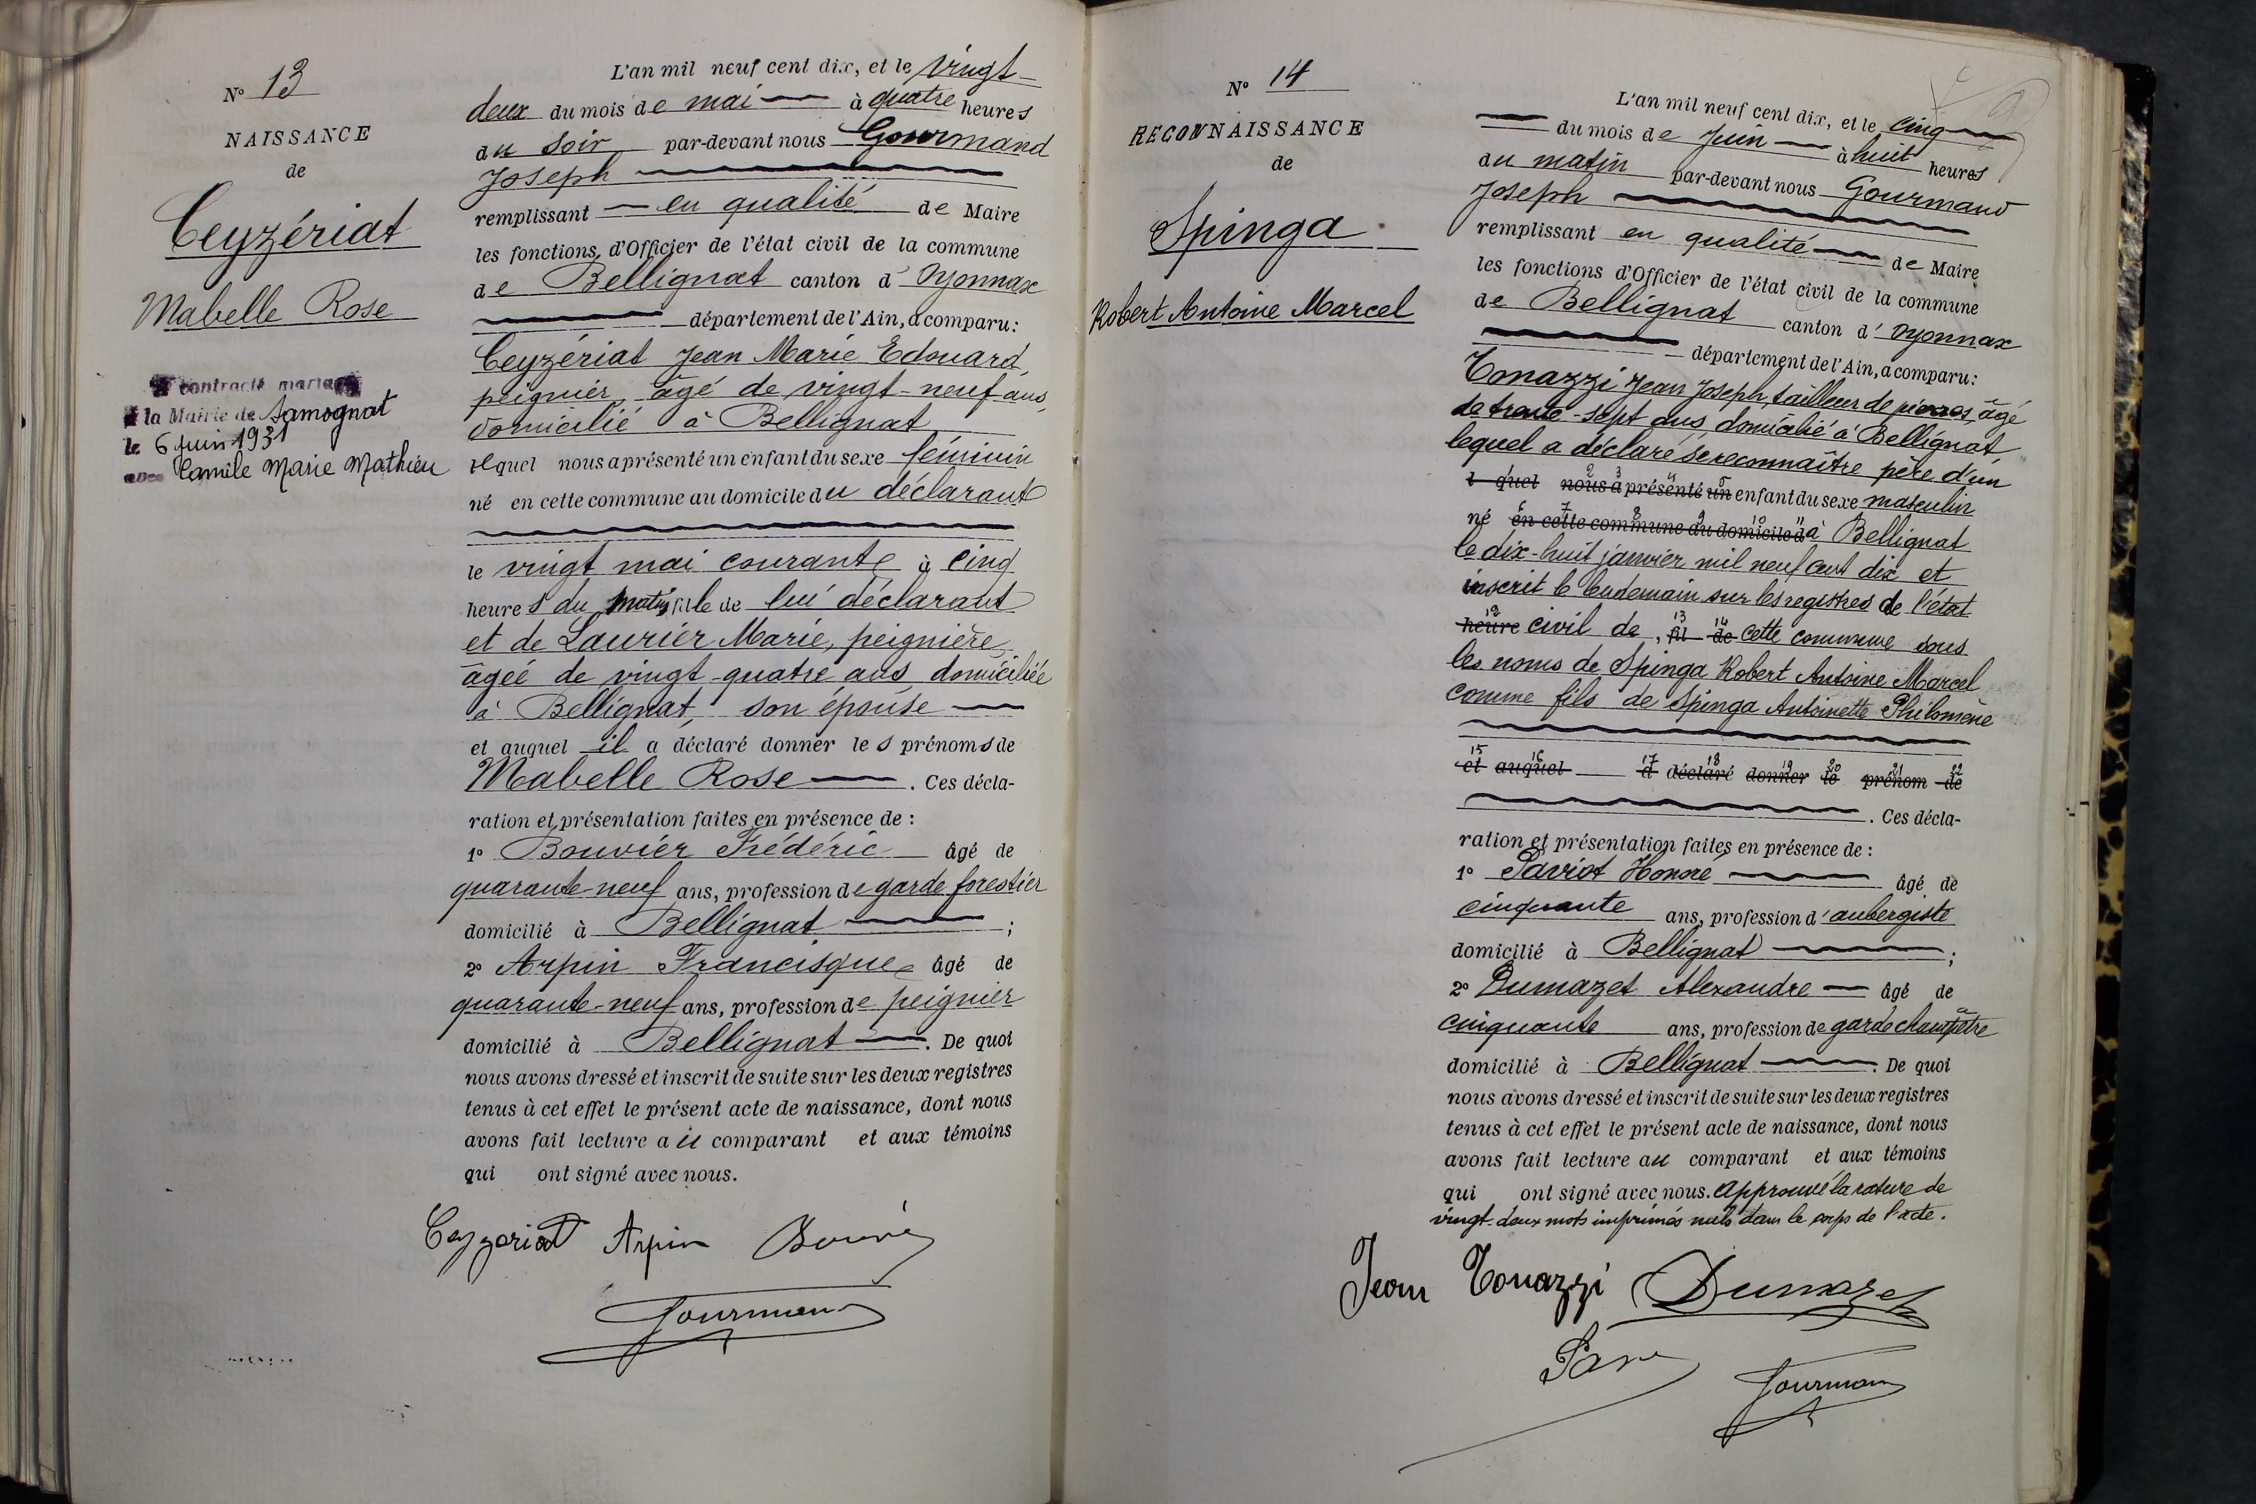 N° 13
NAISSANCE
de
Ceyzériat
Mabelle Rose
A contracté mariage
à la Mairie de Samognat
le 6 juin 1931
avec Camile Marie Mathieu
L'an mil neuf cent dix, et le vingt-
deux du mois de mai à quatre heures
du soir par-devant nous Gourmand
Joseph
remplissant en qualité de Maire
les fonctions d'Officier de l'état civil de la commune
de Bellignat canton d'Oyonnax
département de l'Ain, a comparu :
Ceyzériat Jean Marie Edouard,
peignier, âgé de vingt-neuf ans,
domicilié à Bellignat
lequel nous a présenté un enfant du sexe féminin
né en cette commune au domicile du déclarant
le vingt mai courant à cinq
heures du matin, fille de lui déclarant
et de Laurier Marie, peignière,
âgée de vingt-quatre ans domiciliée
à Bellignat, son épouse
et auquel il a déclaré donner les prénoms de
Mabelle Rose. Ces décla-
ration et présentation faites en présence de :
1° Bouvier Frédéric âgé de
quarante-neuf ans, profession de garde forestier
domicilié à Bellignat ;
2° Arpin Francisque âgé de
quarante-neuf ans, profession de peignier
domicilié à Bellignat. De quoi
nous avons dressé et inscrit de suite sur les deux registres
tenus à cet effet le présent acte de naissance, dont nous
avons fait lecture au comparant et aux témoins
qui ont signé avec nous.
Ceyzeriat Arpin Bouvier
Gourmand
N° 14
RECONNAISSANCE
de
Spinga
Robert Antoine Marcel
L'an mil neuf cent dix, et le cinq
du mois de Juin à huit heures
du matin par-devant nous Gourmand
Joseph
remplissant en qualité de Maire
les fonctions d'Officier de l'état civil de la commune
de Bellignat canton d'Oyonnax
département de l'Ain, a comparu :
Tonazzi Jean Joseph, tailleur de pierres, âgé
de trente-sept ans, domicilié à Bellignat
lequel a déclaré se reconnaître père d'un
1 l quel 2 nous 3 a 4 présenté 5 un enfant du sexe masculin
né 6 en 7 cette 8 commune 9 au 10 domicile 11 d à Bellignat
le dix-huit janvier mil neuf cent dix et
inscrit le lendemain sur les registres de l'état
12 heure civil de, 13 fil 14 de cette commune sous
les noms de Spinga Robert Antoine Marcel
comme fils de Spinga Antoinette Philomène
15 et 16 auquel 17 a 18 déclaré 19 donner 20 le 21 prénom 22 de
. Ces décla-
ration et présentation faites en présence de :
1° Saviot Honoré âgé de
cinquante ans, profession d'aubergiste
domicilié à Bellignat ;
2° Dumazet Alexandre âgé de
cinquante ans, profession de garde champêtre
domicilié à Bellignat. De quoi
nous avons dressé et inscrit de suite sur les deux registres
tenus à cet effet le présent acte de naissance, dont nous
avons fait lecture au comparant et aux témoins
qui ont signé avec nous. Approuvé la rature de
vingt-deux mots imprimés nuls dans le corps de l'acte.
Jean Tonazzi Dumazet
Gourmand